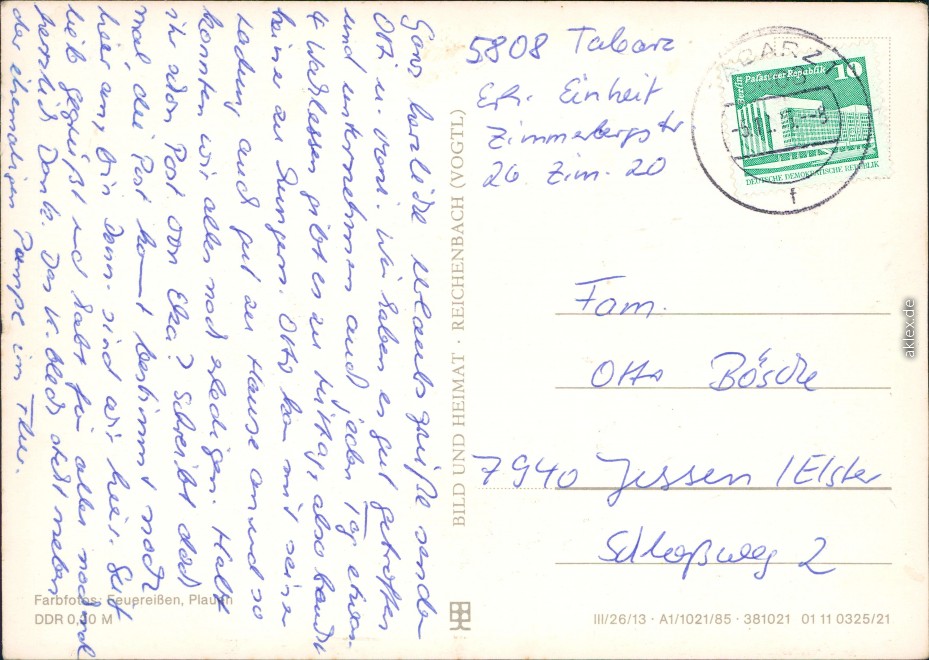 Ganz herzliche Urlaubsgrüße senden
Otti u. Wir haben es gut getroffen
und unternehmen auch jeden Tag etwas.
4 gibt es zu Mittag, also braucht
keiner zu hungern. Otto kann mit seiner
auch gut zu Hause an und so
konnten wir alles noch erledigen. Habt
ihr schon Post von Elka? Schreibt doch
mal, die Post kommt bestimmt noch
hier an, bis dann sind wir hier. Seid
lieb gegrüßt und habt für alles nochmal
herzlich Dank. Das K. steht neben
der ehemaligen Pumpe im Thür.
5808 Tabarz
Erh. Einheit
Zimmerbergstr
20 Zim. 20
TABARZ 1
-8
f
Berlin Palast der Republik 10
DEUTSCHE DEMOKRATISCHE REPUBLIK
Fam.
Otto Bösche
7940 Jessen / Elster
Schloßweg 2
BILD UND HEIMAT · REICHENBACH (VOGTL)
Farbfotos: Feuereißen, Plauen
DDR 0,30 M
III/26/13 · A1/1021/85 · 381021 01 11 0325/21
aklex.de